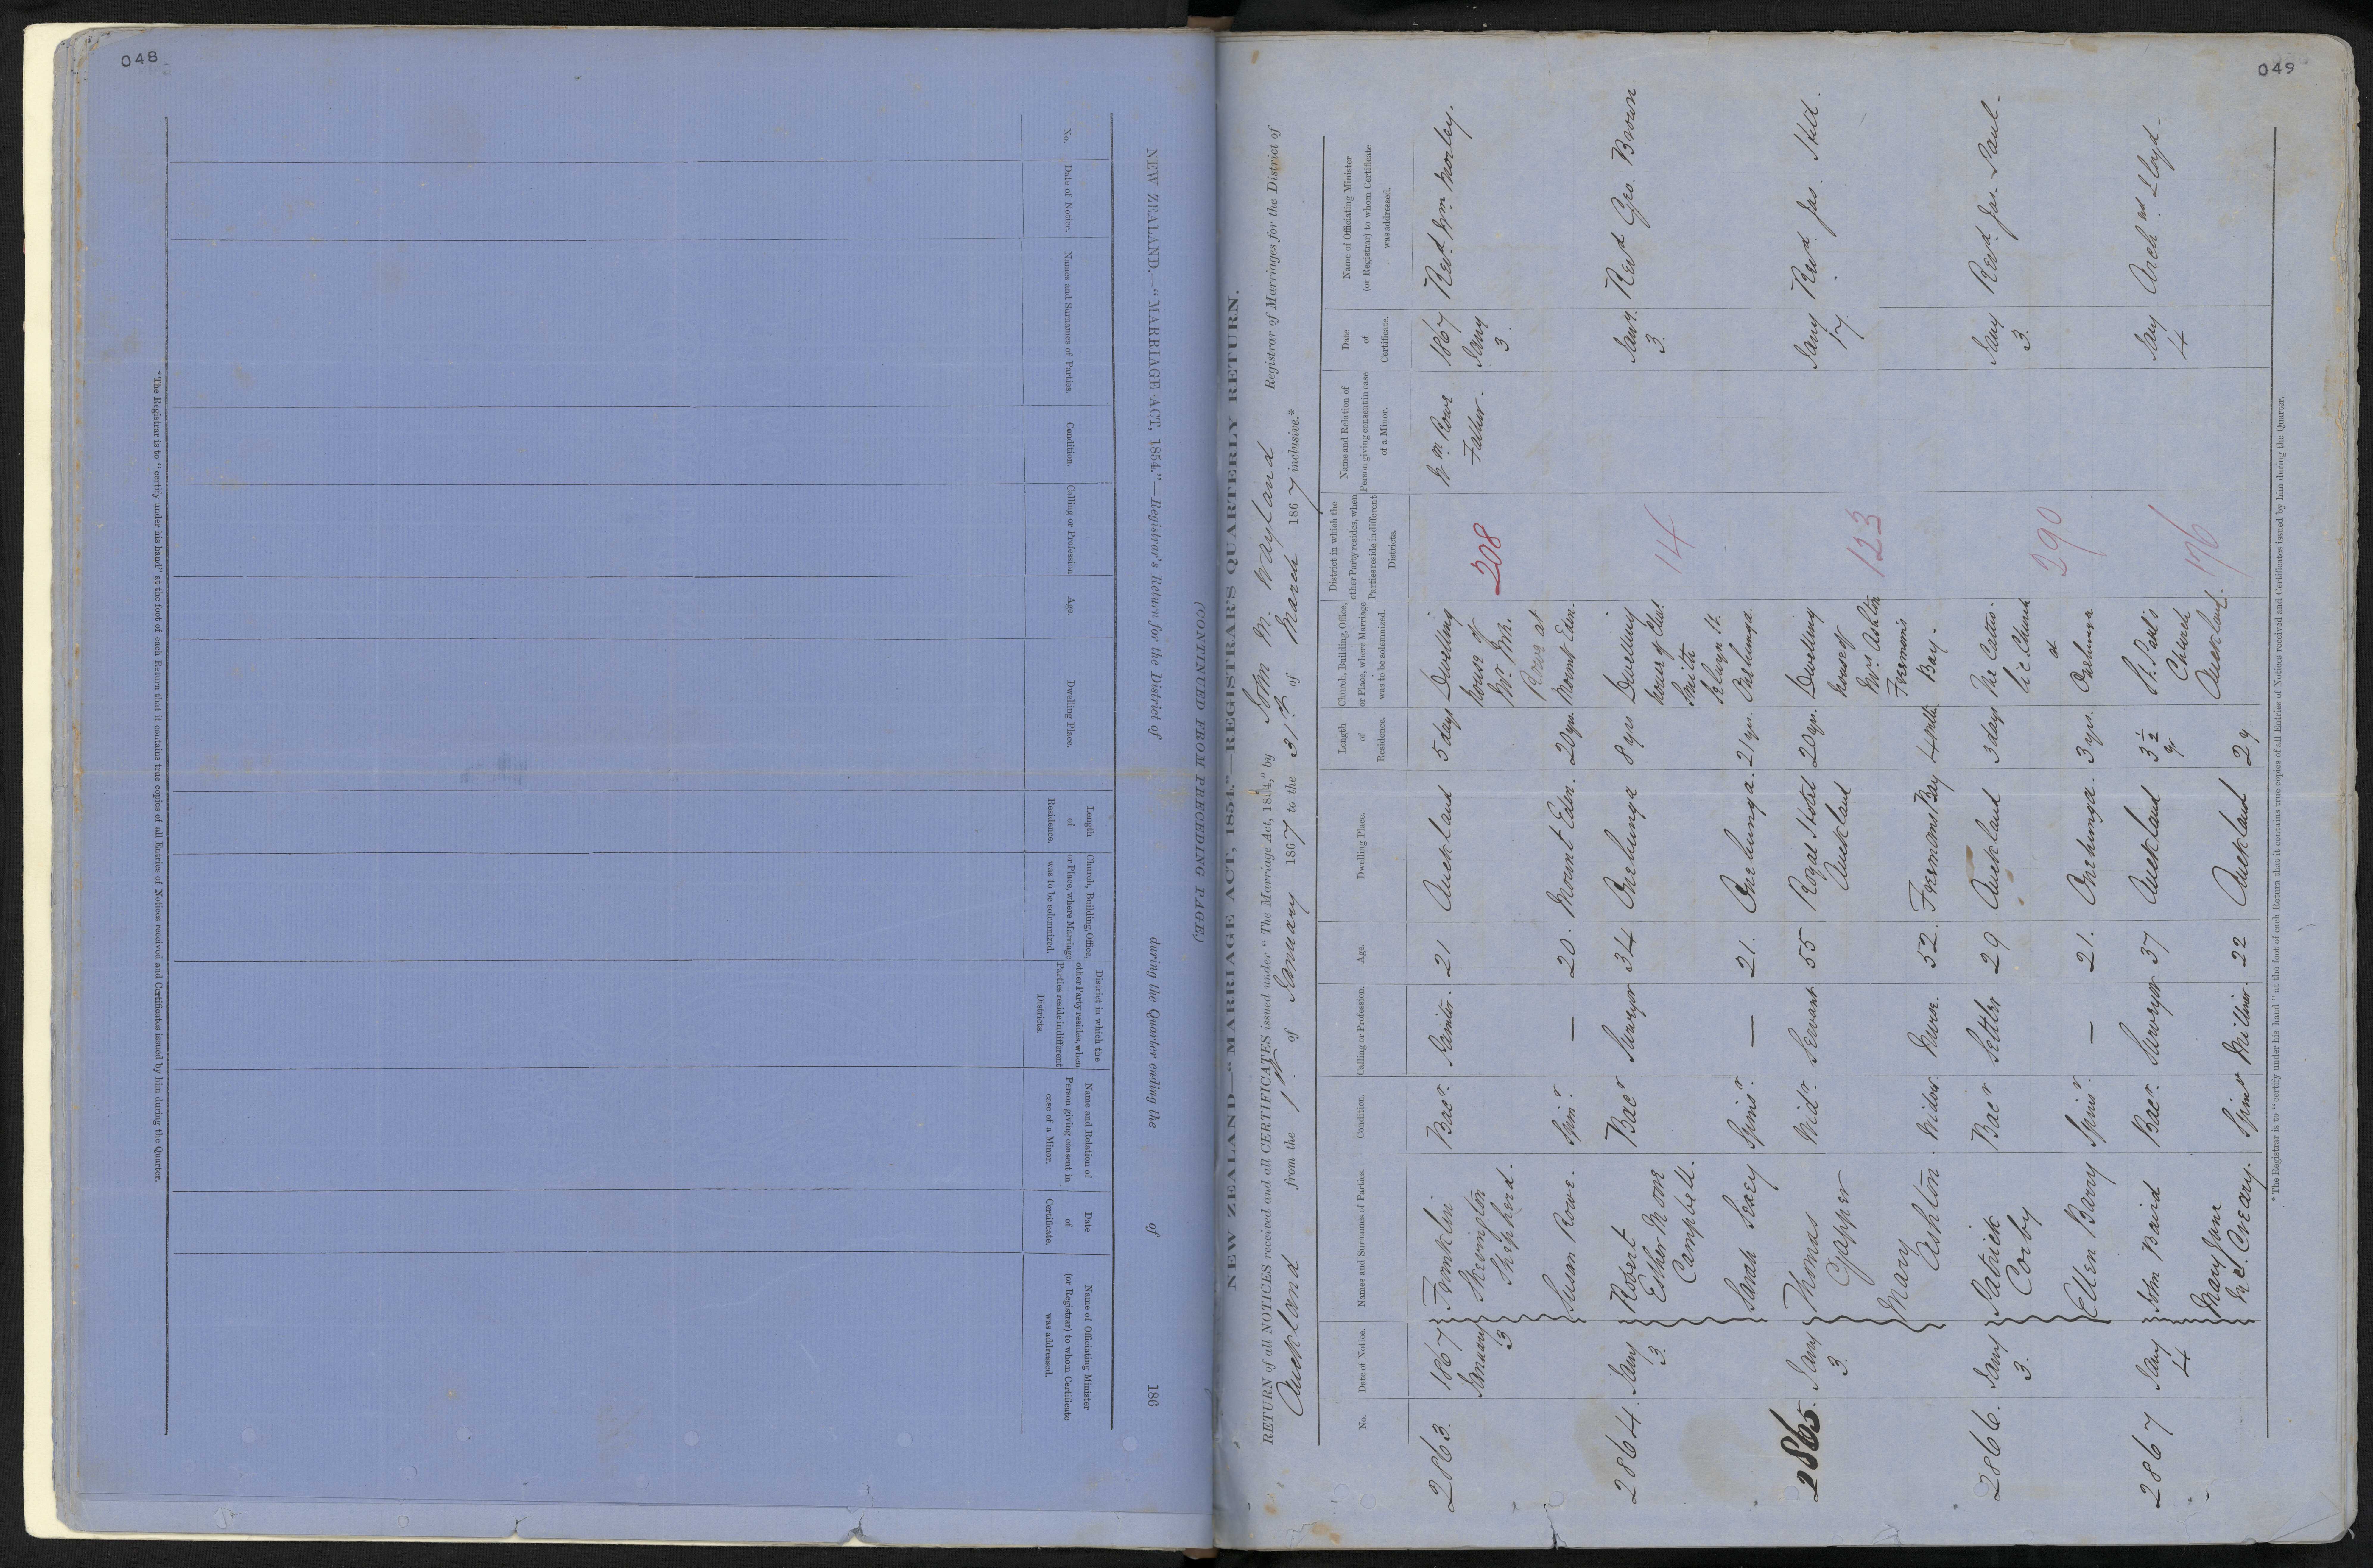 048
NEW ZEALAND.—"MARRIAGE ACT, 1854."—Registrar's Return for the District of during the Quarter ending the of 186
(CONTINUED FROM PRECEDING PAGE.)
No.
Date of Notice.
Names and Surnames of Parties.
Condition.
Calling or Profession
Age.
Dwelling Place.
Length
of
Residence.
Church, Building, Office,
or Place, where Marriage
was to be solemnized.
District in which the
other Party resides, when
Parties reside in different
Districts.
Name and Relation of
Person giving consent in
case of a Minor.
Date
of
Certificate.
Name of Officiating Minister
(or Registrar) to whom Certificate
was addressed.
* The Registrar is to "certify under his hand" at the foot of each Return that it contains true copies of all Entries of Notices received and Certificates issued by him during the Quarter.
049
NEW ZEALAND—"MARRIAGE ACT, 1854."—REGISTRAR'S QUARTERLY RETURN.
RETURN of all NOTICES received and all CERTIFICATES issued under "The Marriage Act, 1854," by John M. Wayland Registrar of Marriages for the District of
Auckland from the 1st of January 1867 to the 31st of March 1867 inclusive.*
No.
Date of Notice.
Names and Surnames of Parties.
Condition.
Calling or Profession.
Age.
Dwelling Place.
Length
of
Residence.
Church, Building, Office,
or Place, where Marriage
was to be solemnized.
District in which the
other Party resides, when
Parties reside in different
Districts.
Name and Relation of
Person giving consent in case
of a Minor.
Date
of
Certificate.
Name of Officiating Minister
(or Registrar) to whom Certificate
was addressed.
2863.
1867
January
3
Franklin
Skevington
Shepherd.
Bacr.
Painter.
21
Auckland
5 days
Susan Rowe.
Spinr.
—
20.
Mount Eden.
20 yrs.
Dwelling
house of
Mr. Wm.
Rowe at
Mount Eden.
208
Wm Rowe
Father.
1867
Jany
3
Revd. Wm. Morley.
2864.
Jany
3.
Robert
Esther Moore
Campbell.
Bacr
Surveyor
34
Onehunga
8 yrs
Sarah Sexey
Spinsr.
—
21.
Onehunga.
21 yrs.
Dwelling
house of Chas.
Smith
Selwyn St.
Onehunga.
14
Jany.
3.
Revd Geo. Brown
2865.
Jany
3.
Thomas
Gapper
Widr.
Servant
55
Royal Hotel
Auckland
20 yrs.
Mary
Ashton.
Widow.
Nurse.
52.
Freemans Bay
4 mths.
Dwelling
house of
Mrs Ashton
Freeman's
Bay.
123
Jany
17.
Revd. Jas. Hill.
2866.
Jany
3.
Patrick
Corby
Bacr
Settler
29
Auckland
3 days
Ellen Barry
Spinsr.
—
21.
Onehunga.
3 yrs.
The Catho-
lic Church
at
Onehunga
290
Jany
3.
Revd. Jas. Paul.
2867
Jany
4
John Baird
Bacr.
Surveyor
37
Auckland
3 1/2
yr
Mary Jane
McCreary.
Spinst
Milliner.
22
Auckland
2 y
St. Paul's
Church
Auckland.
176
Jany
4
Archd. Lloyd.
* The Registrar is to "certify under his hand" at the foot of each Return that it contains true copies of all Entries of Notices received and Certificates issued by him during the Quarter.